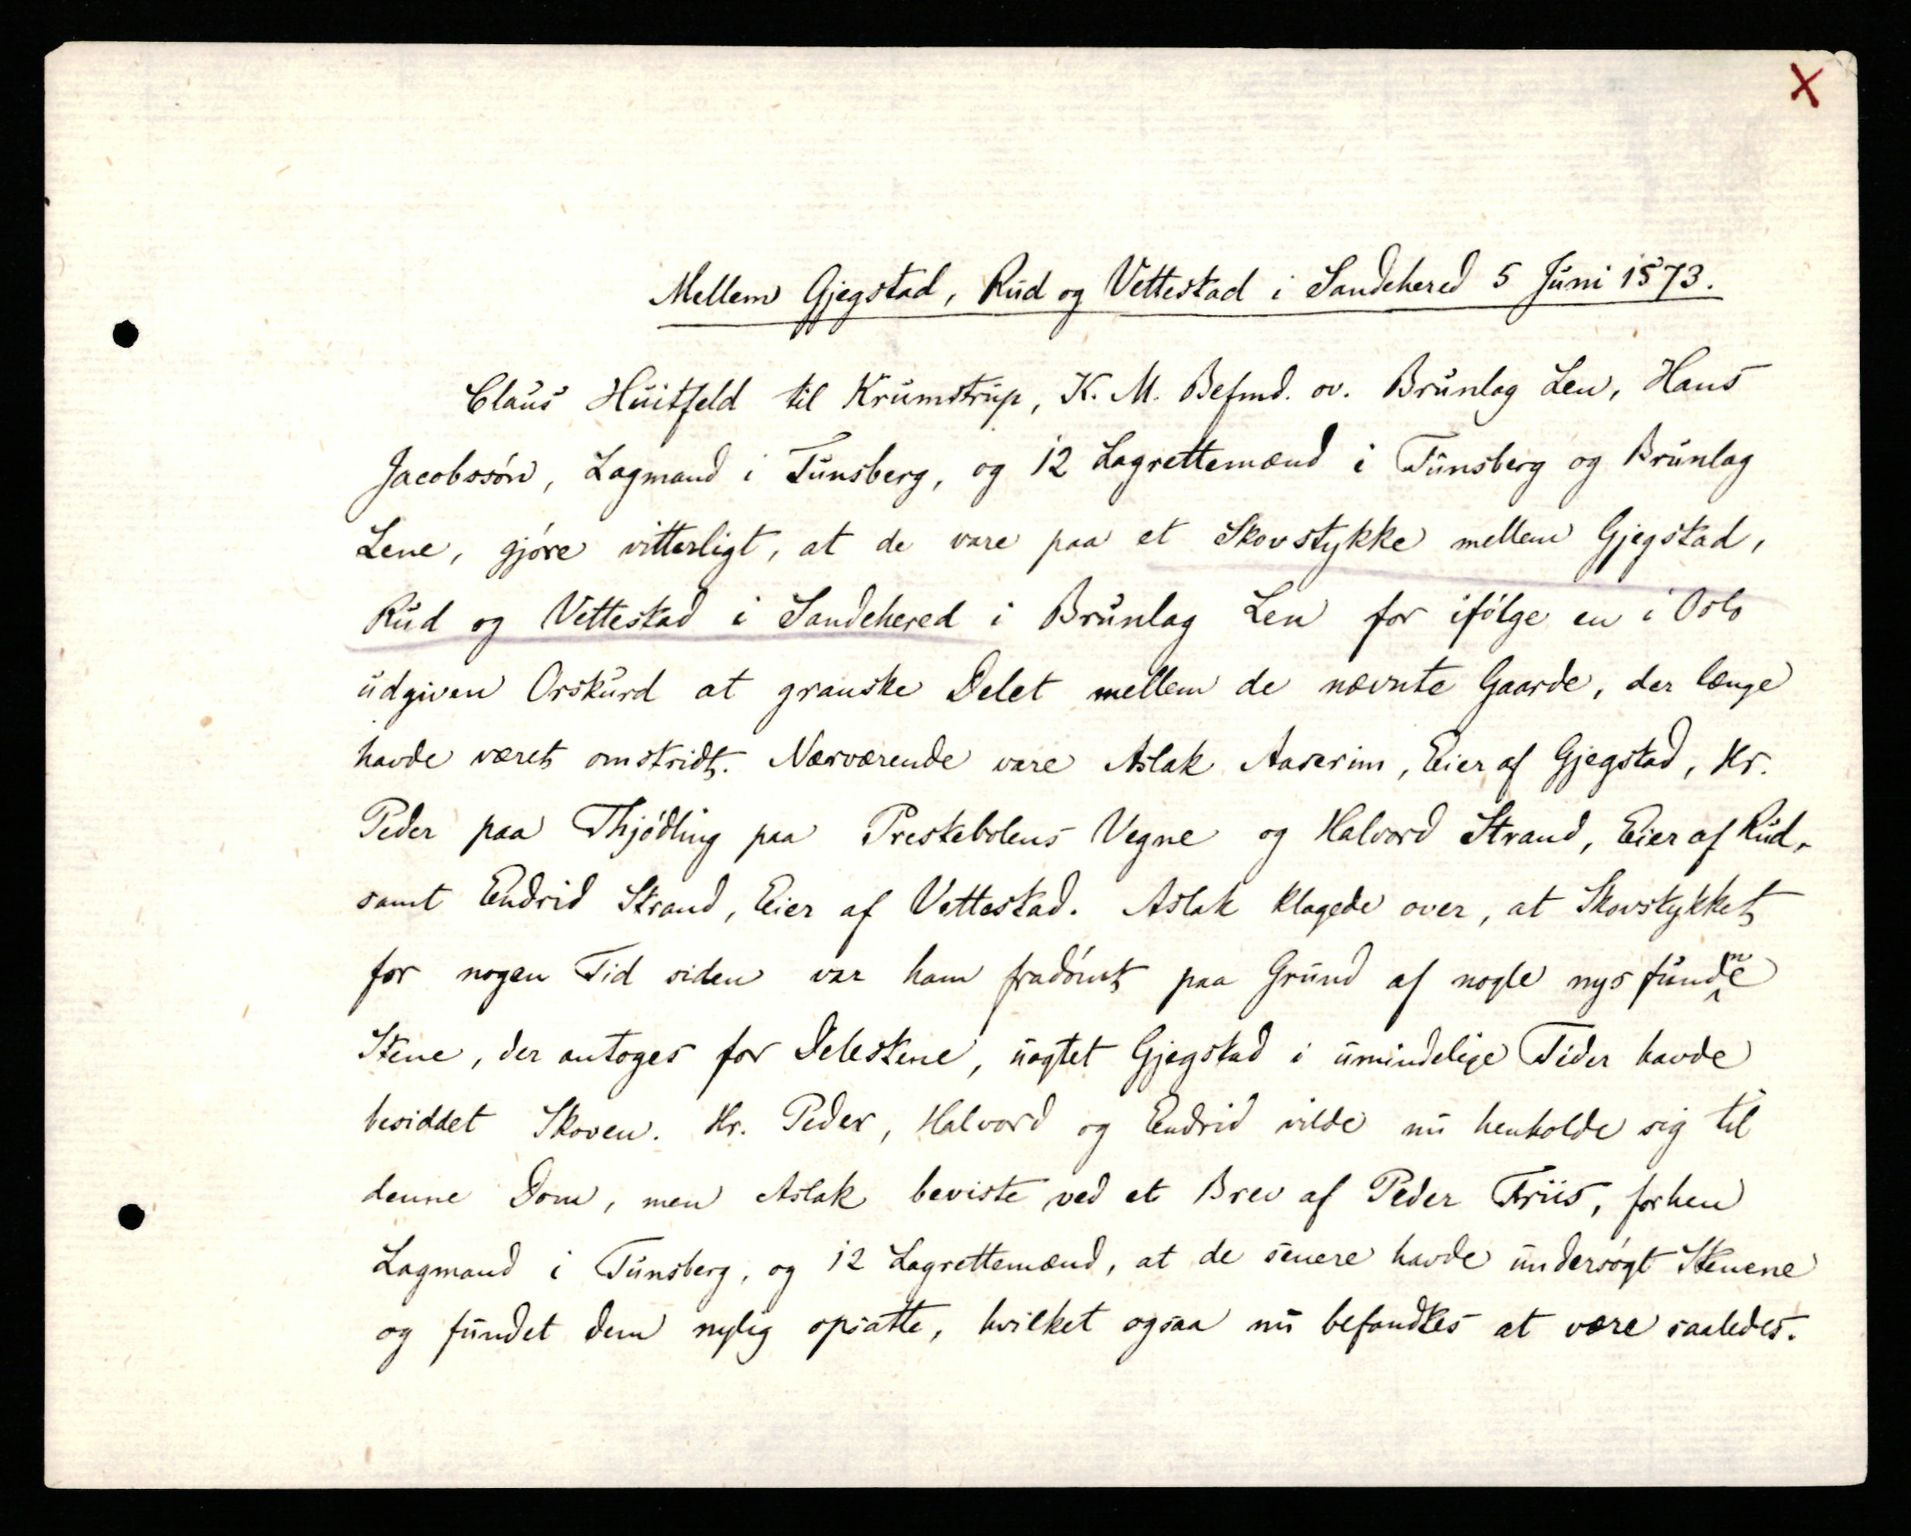 X
Mellem Gjegstad, Rud og Vettestad i Sandehered 5 Juni 1573.
Claus Huitfeld til Krumstrup, K. M. Befmd. ov. Brunlag Len, Hans
Jacobssøn, Lagmand i Tunsberg, og 12 Lagrettemænd i Tunsberg og Brunlag
Lene, gjøre vitterligt, at de vare paa et Skovstykke mellem Gjegstad,
Rud og Vettestad i Sandehered i Brunlag Len for ifølge en i Oslo
udgiven Orskurd at granske Delet mellem de nævnte Gaarde, der længe
havde været omstridt. Nærværende vare Aslak Aaserim, Eier af Gjegstad, Hr.
Peder paa Thjødling paa Prestebolens Vegne og Halvord Strand, Eier af Rud,
samt Endrid Strand, Eier af Vettestad. Aslak klagede over, at Skovstykket
for nogen Tid siden var ham fradømt paa Grund af nogle nys fundne
Stene, der antoges for Delestene, uagtet Gjegstad i umindelige Tider havde
besiddet Skoven. Hr. Peder, Halvord og Endrid vilde nu henholde sig til
denne Dom, men Aslak beviste ved et Brev af Peder Friis, forhen
Lagmand i Tunsberg, og 12 Lagrettemænd, at de senere havde undersøgt Stenene
og fundet dem nylig opsatte, hvilket ogsaa nu befandtes at være saaledes.